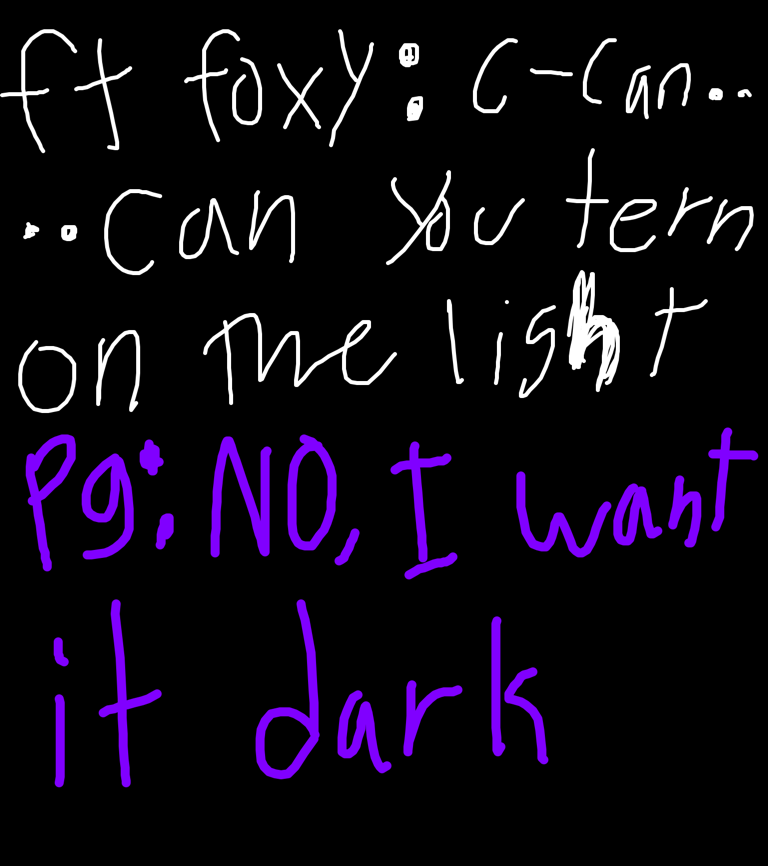 ft foxy: C-Can..
..Can you tern
on the light
Pg: NO, I want
it dark